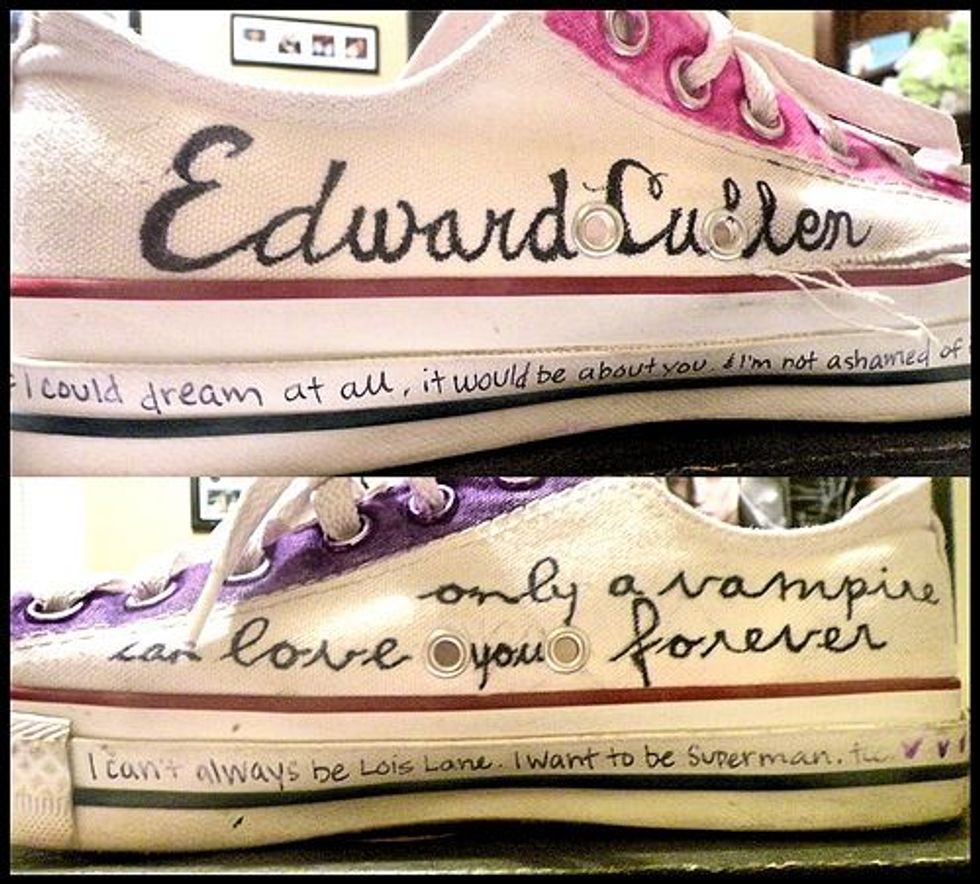 Edward Cullen
I could dream at all, it would be about you. & I'm not ashamed of
only a vampire
can love you forever
I can't always be Lois Lane. I want to be Superman.